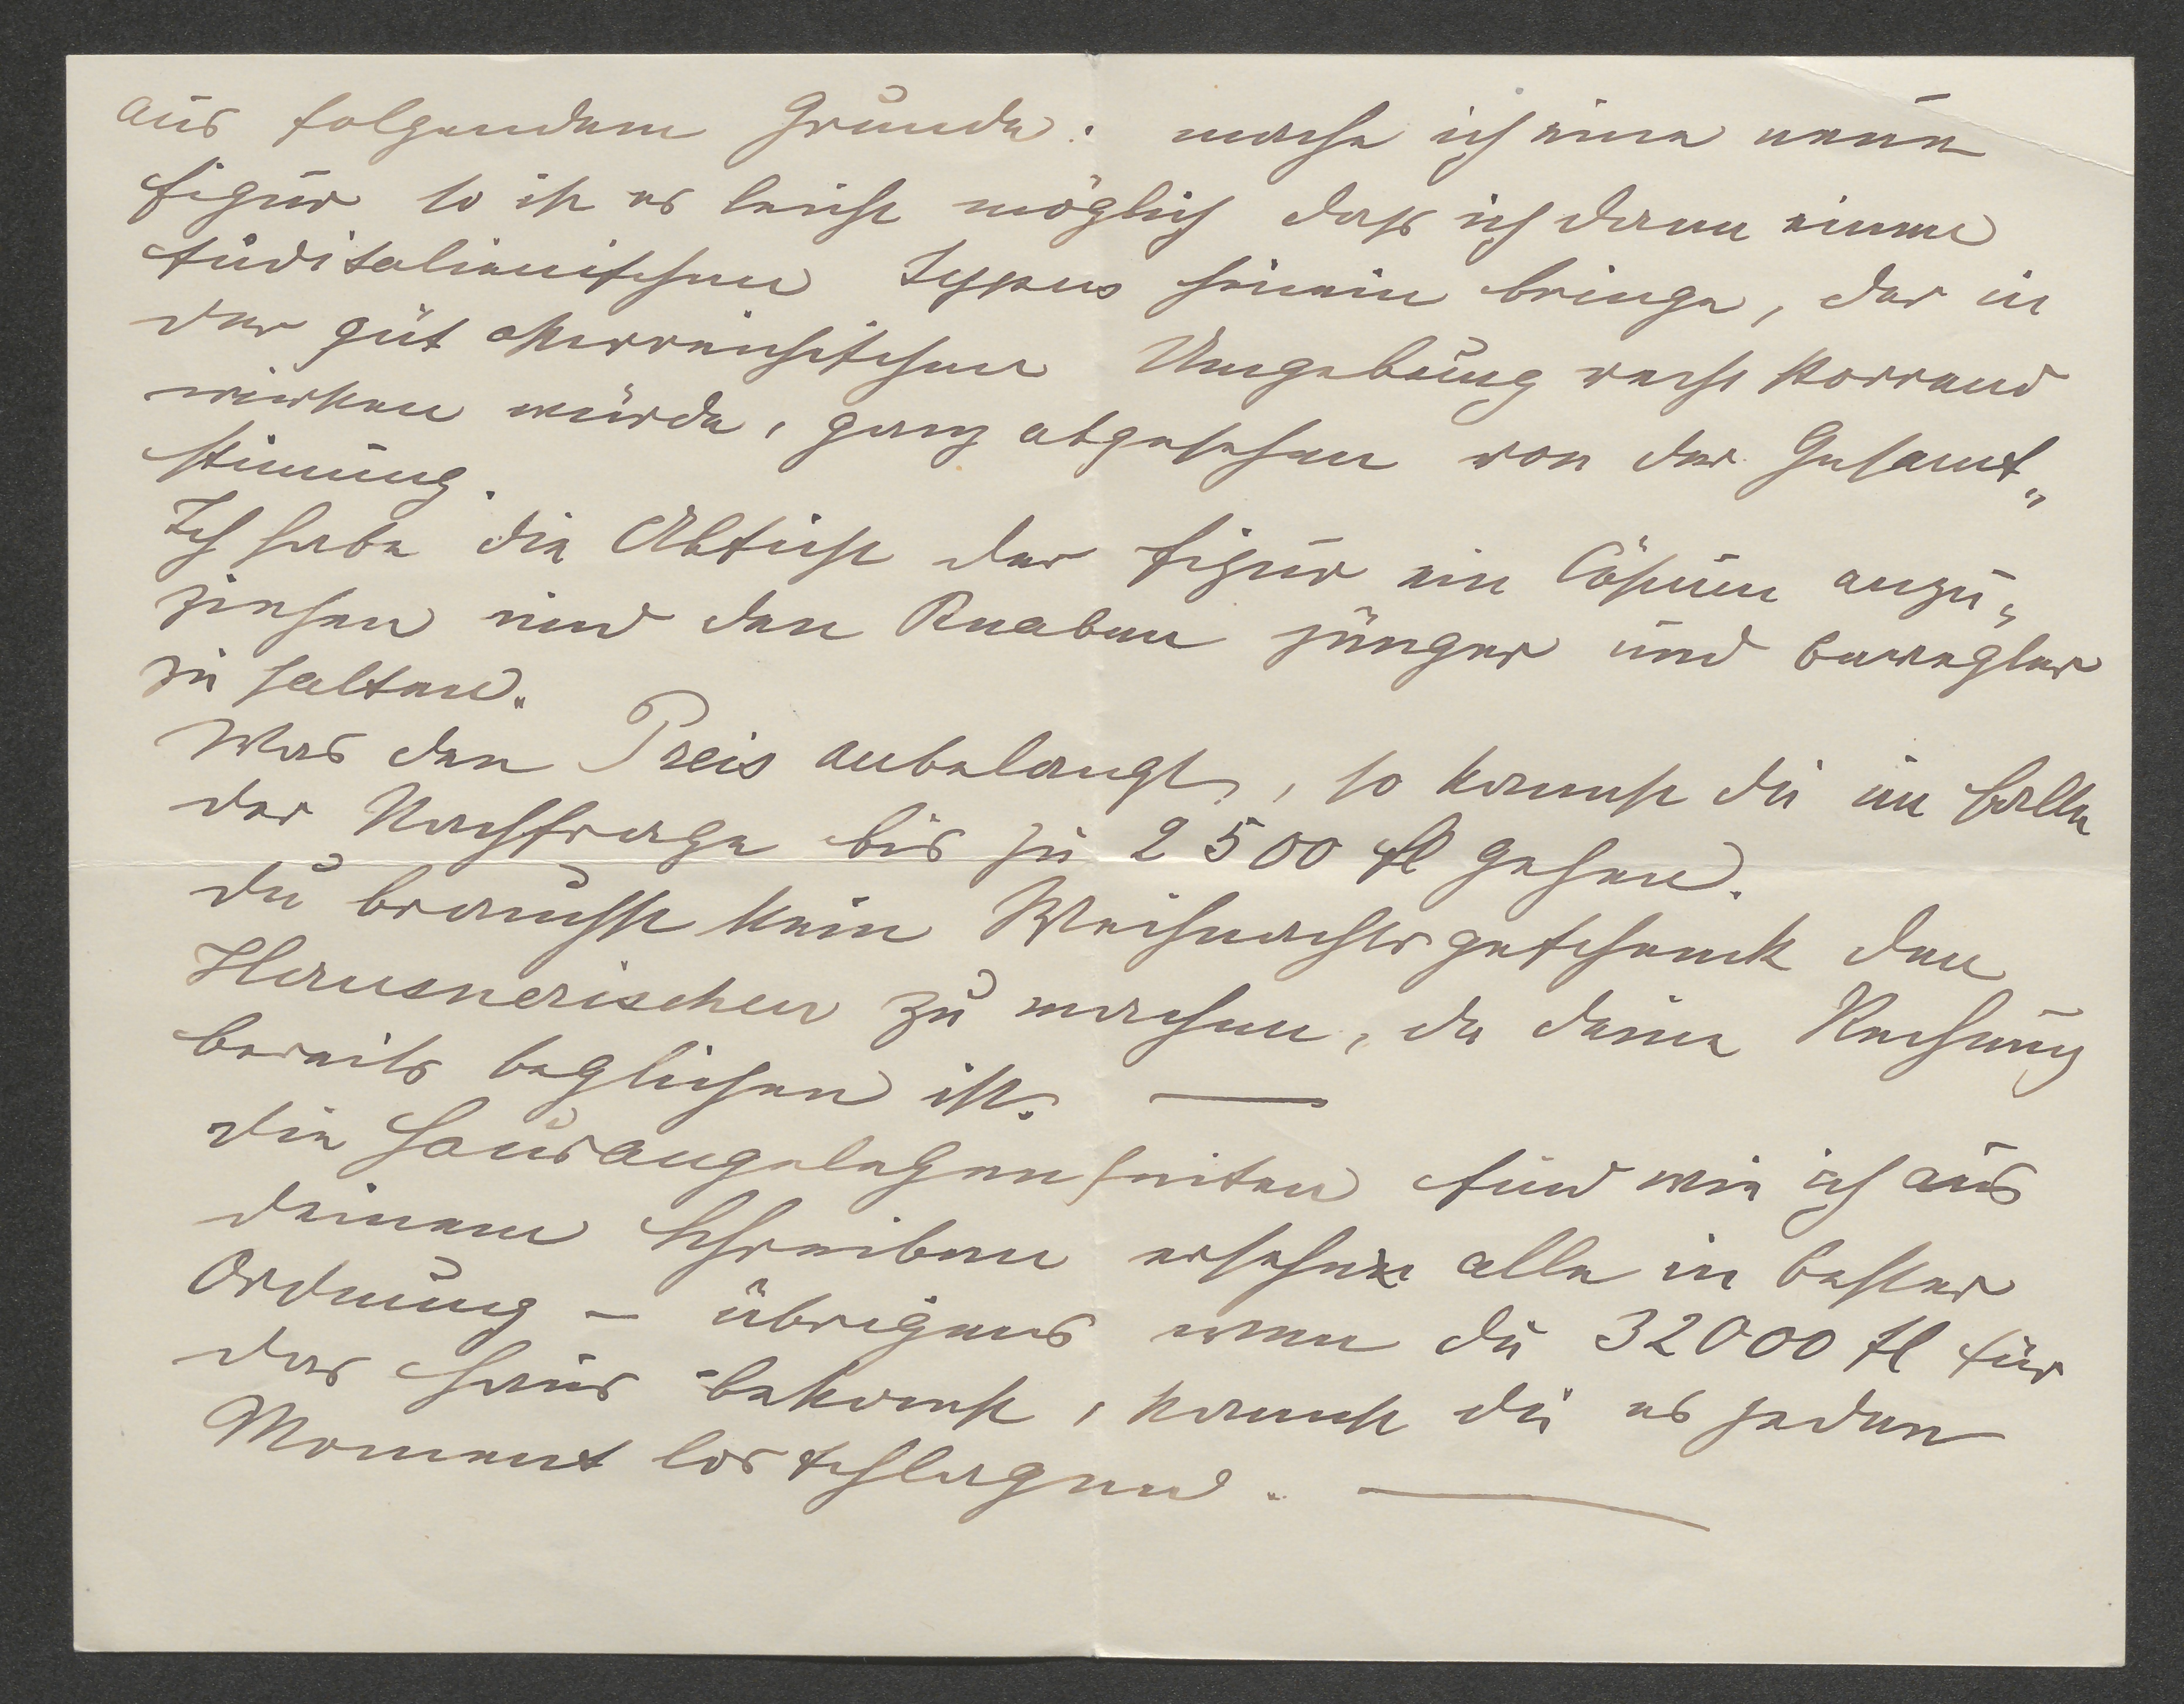 aus folgendem Grunde: mache ich eine neue
Figur so ist es leicht möglich dass ich dann einen
süditalienischen Typus hinein bringe, der in
der gut österreichischen Umgebung recht störend
wirken würde, ganz abgesehen von der Gesamt„
stimung.
Ich habe die Absicht der Figur ein Cöstüm anzu„
ziehen und den Knaben jünger und bewegter
zu halten.
Was den Preis anbelangt, so kannst du im Falle
der Nachfrage bis zu 2500 fl gehen.
du brauchst kein Weihnachtsgeschenk den
Hausnerischen zu machen, da deine Rechnung
bereits beglichen ist. —
die Hausangelegenheiten sind wie ich aus
deinem Schreiben ersehen alle in bester
Ordnung – übrigens wenn du 32000 fl für
das Haus bekomst, kannst du es jeden
Moment los schlagen. —